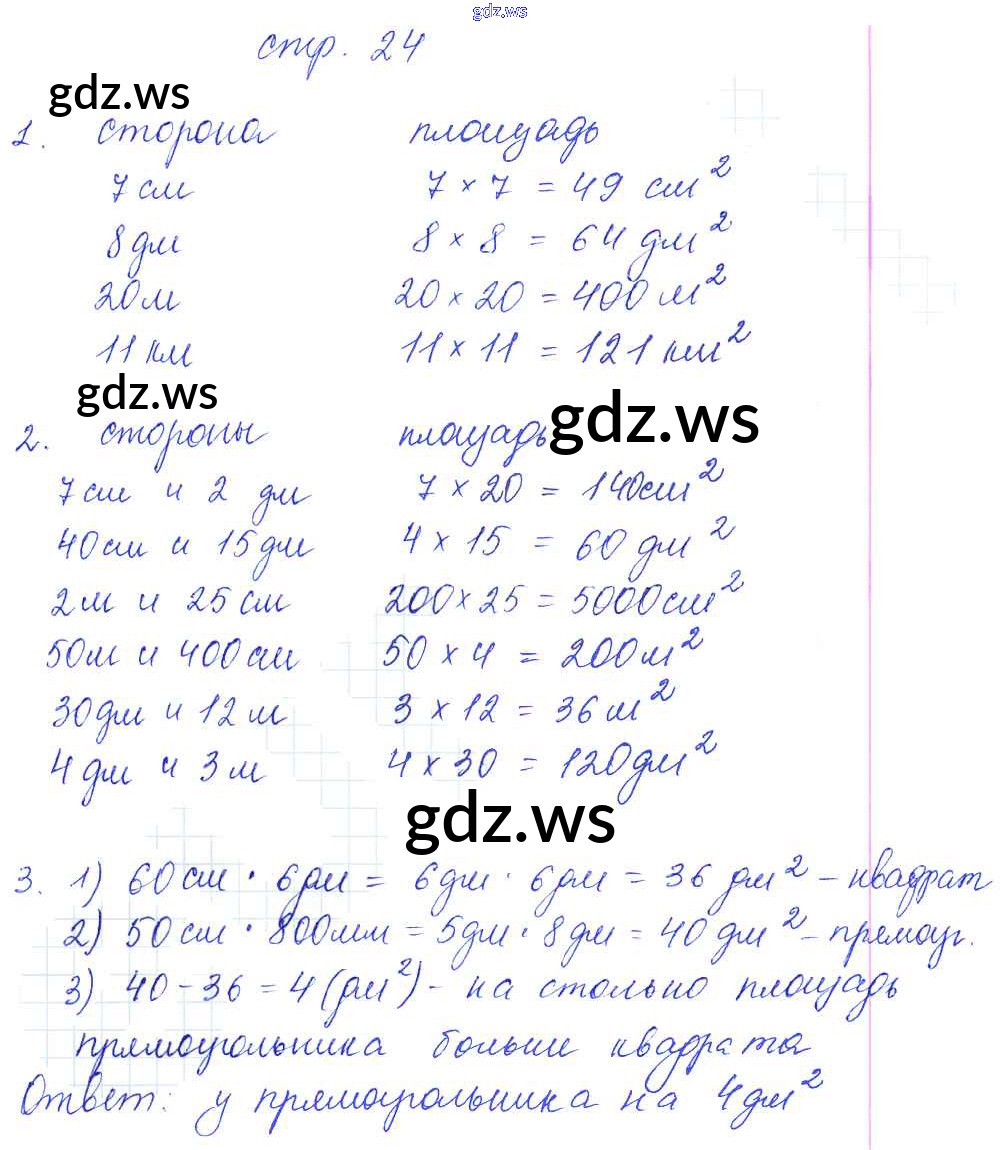 gdz.ws
стр. 24
gdz.ws
1. сторона площадь
7 см 7 × 7 = 49 см²
8 дм 8 × 8 = 64 дм²
20 м 20 × 20 = 400 м²
11 км 11 × 11 = 121 км²
gdz.ws gdz.ws
2. стороны площадь
7 см и 2 дм 7 × 20 = 140 см²
40 см и 15 дм 4 × 15 = 60 дм²
2 м и 25 см 200 × 25 = 5000 см²
50 м и 400 см 50 × 4 = 200 м²
30 дм и 12 м 3 × 12 = 36 м²
4 дм и 3 м 4 × 30 = 120 дм²
gdz.ws
3. 1) 60 см · 6 дм = 6 дм · 6 дм = 36 дм² – квадрат
2) 50 см · 800 мм = 5 дм · 8 дм = 40 дм² – прямоуг.
3) 40 – 36 = 4 (дм²) – на столько площадь
прямоугольника больше квадрата
Ответ: у прямоугольника на 4 дм²